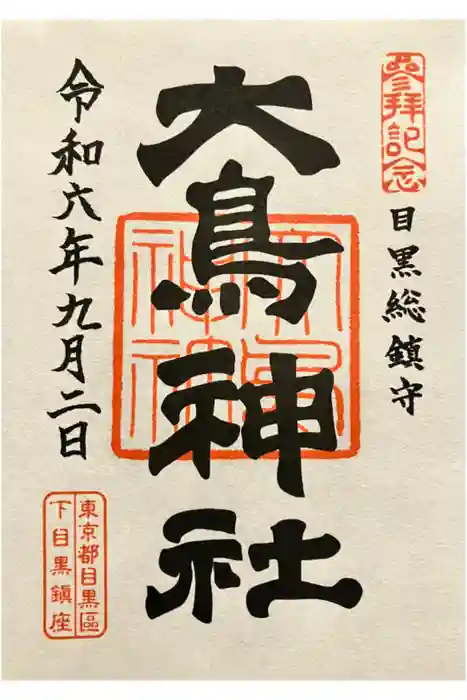 參拝記念
目黒総鎮守
大鳥神社
大鳥神社
令和六年九月二日
東京都目黒區
下目黒鎮座